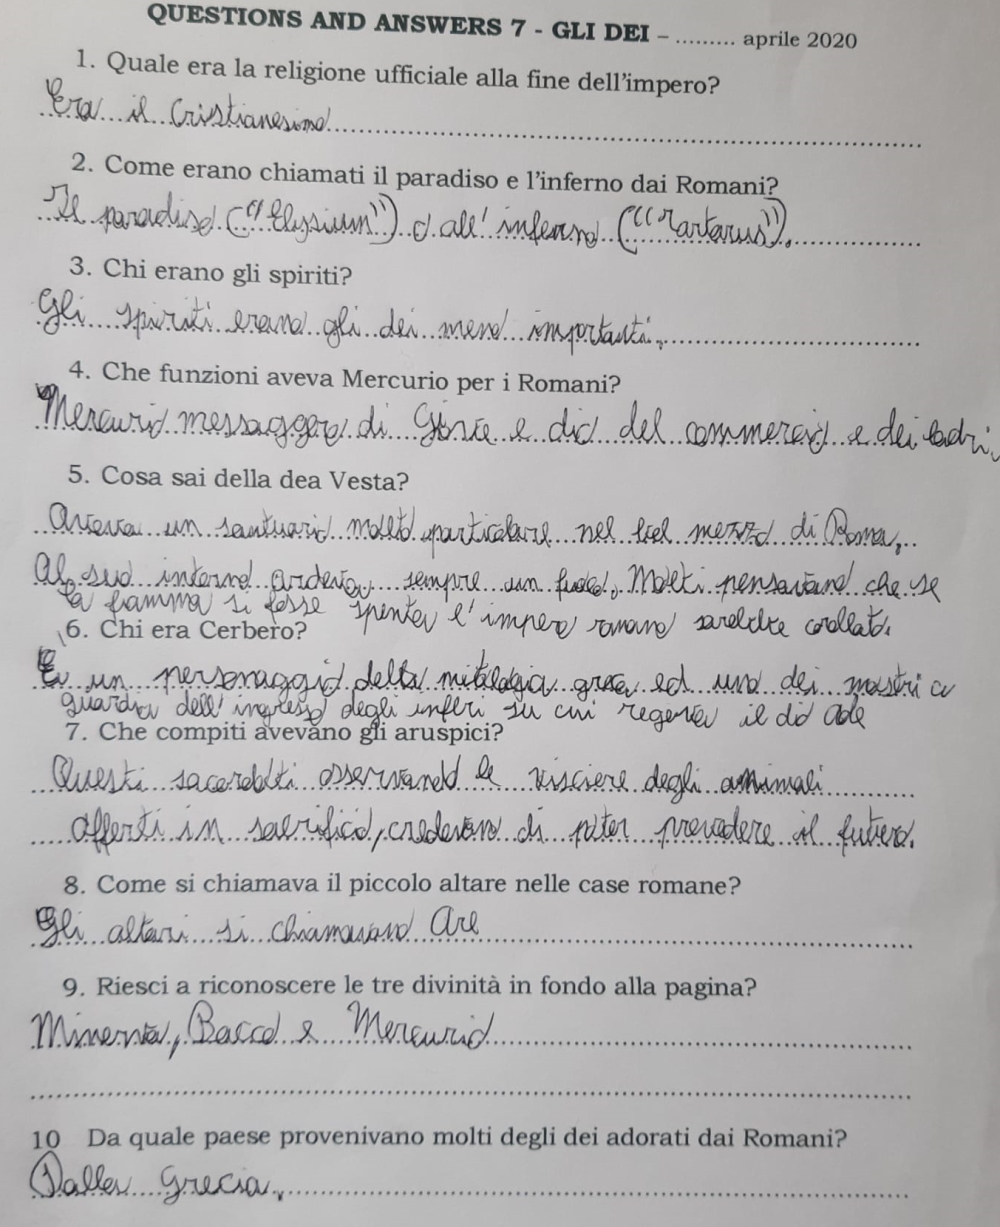 QUESTIONS AND ANSWERS 7 - GLI DEI – ......... aprile 2020
1. Quale era la religione ufficiale alla fine dell'impero?
Era il Cristianesimo
2. Come erano chiamati il paradiso e l'inferno dai Romani?
Il paradiso ("Elysium") o all'inferno ("Tartarus").
3. Chi erano gli spiriti?
Gli spiriti erano gli dei meno importanti.
4. Che funzioni aveva Mercurio per i Romani?
Mercurio messaggero di Giove e dio del commercio e dei ladri.
5. Cosa sai della dea Vesta?
Aveva un santuario molto particolare nel bel mezzo di Roma,
Al suo interno ardeva sempre un fuoco. Molti pensavano che se
la fiamma si fosse spenta l'impero romano sarebbe crollato.
6. Chi era Cerbero?
È un personaggio della mitologia greca ed uno dei mostri a
guardia dell'ingresso degli inferi su cui regnava il dio Ade
7. Che compiti avevano gli aruspici?
Questi sacerdoti osservando le viscere degli animali
offerti in sacrificio, credevano di poter prevedere il futuro.
8. Come si chiamava il piccolo altare nelle case romane?
Gli altari si chiamavano Are
9. Riesci a riconoscere le tre divinità in fondo alla pagina?
Minerva, Bacco e Mercurio
10 Da quale paese provenivano molti degli dei adorati dai Romani?
Dalla Grecia.